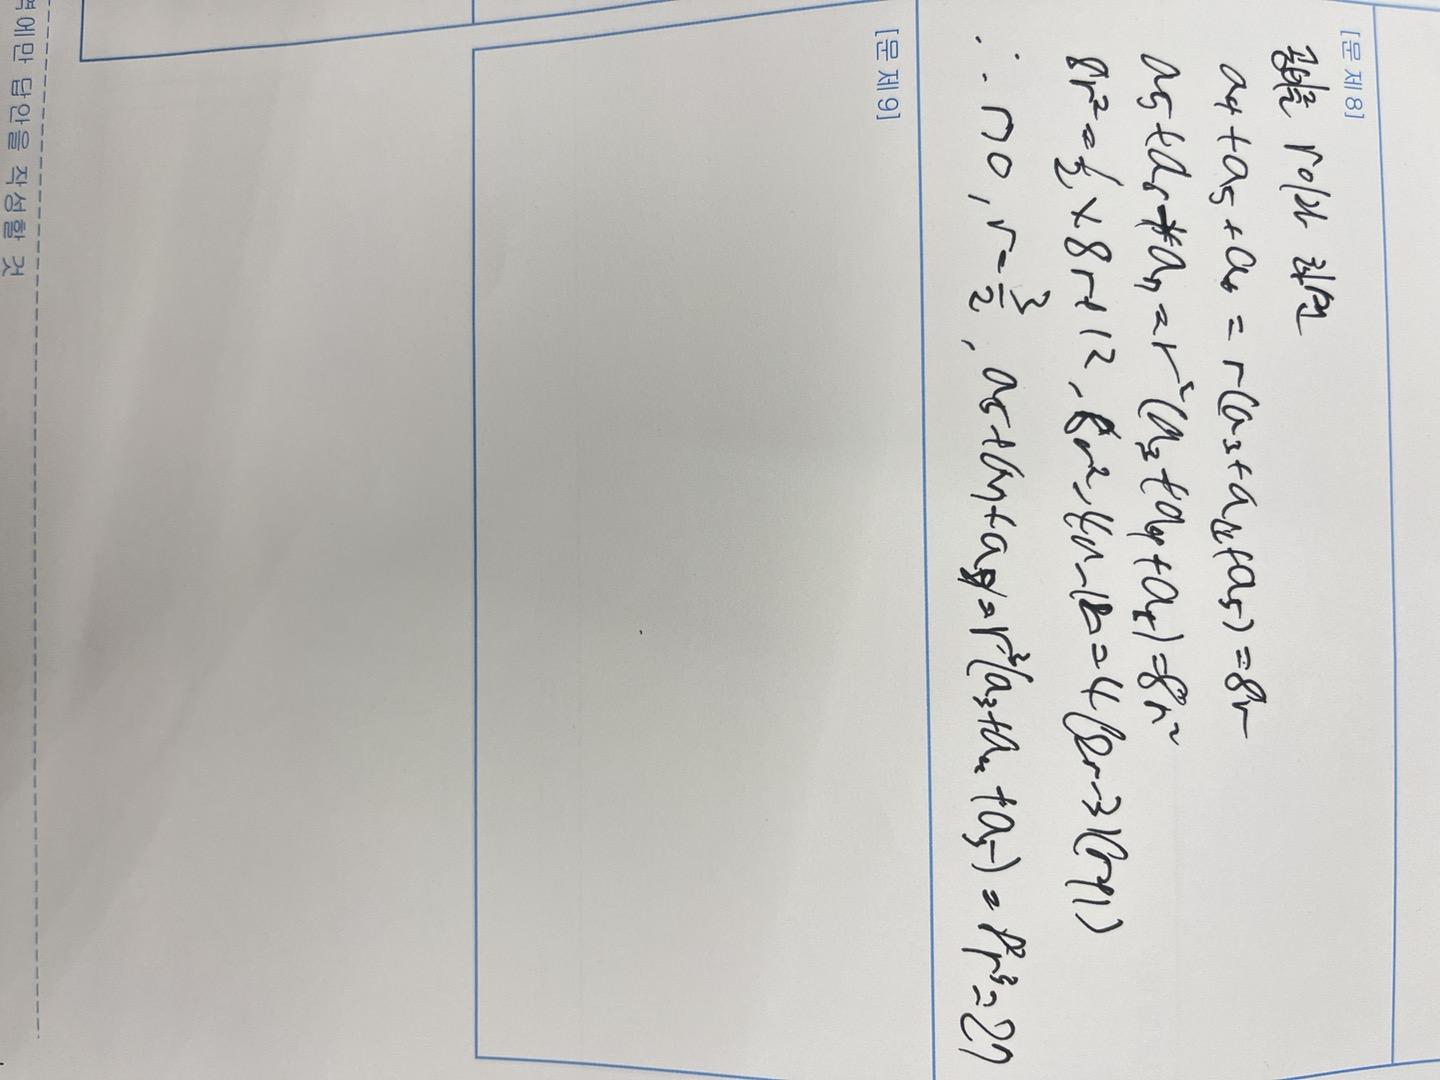 [문 제 8]
공비를 r이라 하면
a4+a5+a6 = r(a3+a4+a5) = 8r
a5+a6+a7 = r²(a3+a4+a5) = 8r²
8r² = 1/2 × 8r + 12, 8r²-4r-12 = 4(2r-3)(r+1)
∴ r>0, r = 3/2, a6+a7+a8 = r³(a3+a4+a5) = 8r³ = 27
[문 제 9]
역에만 답안을 작성할 것